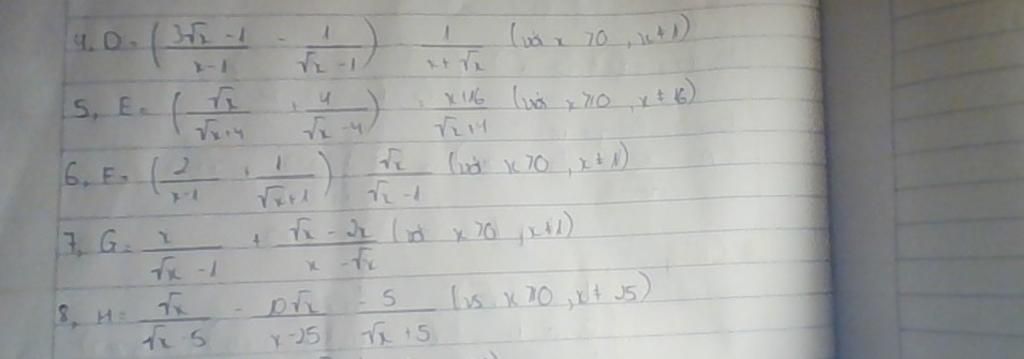 4, D = (3√x - 1 / x - 1 - 1 / √x - 1) 1 / x + √x (với x > 0, x ≠ 1)
5, E = (√x / √x + 4 + 4 / √x - 4) : x + 16 / √x + 4 (với x ≥ 0, x ≠ 16)
6, E = (2 / x - 1 + 1 / √x + 1) √x / √x - 1 (với x > 0, x ≠ 1)
7, G = x / √x - 1 + √x - 2x / x - √x (với x > 0, x ≠ 1)
8, H = √x / √x - 5 - 10√x / x - 25 - 5 / √x + 5 (với x ≥ 0, x ≠ 25)